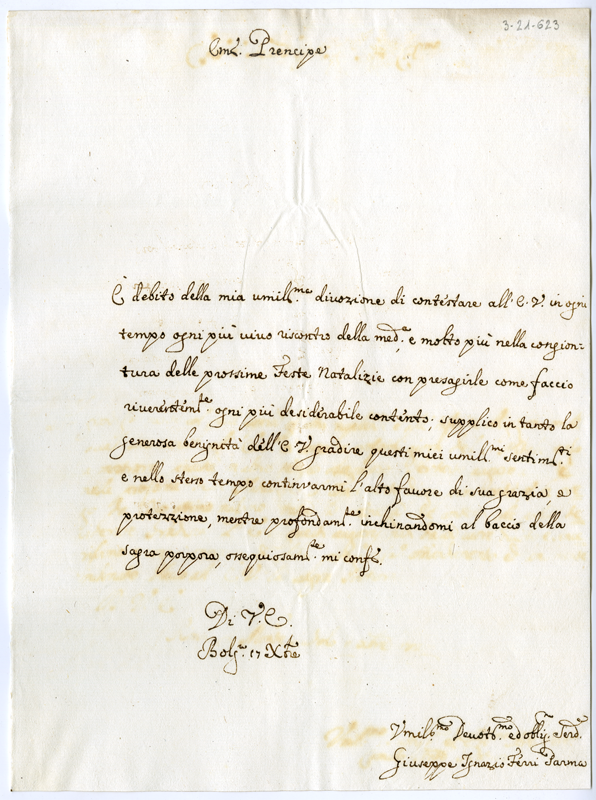 3-21-623
Em.ᵒ Prencipe
È debito della mia umill.ᵐᵃ divozione di contestare all'E. V. in ogni
tempo ogni più vivo riscontro della med.ᵃ, e molto più nella congion-
tura delle prossime Feste Natalizie con presagirle come faccio
riverentem.ᵗᵉ ogni più desiderabile contento; supplico in tanto la
generosa benignità dell'E V. gradire questi miei umill.ᵐⁱ sentim.ᵗⁱ
e nello stesso tempo continvarmi l'alto favore di sua grazia, e
protezzione, mentre profondam.ᵗᵉ inchinandomi al baccio della
sagra porpora, ossequiosam.ᵗᵉ mi conf.ᵒ
Di V. E.
Bol.ᵃ 17 Xbre
Vmil.ᵐᵒ Devot.ᵐᵒ ed obblig. Serd.ᵉ
Giuseppe Ignazio Ferri Parma